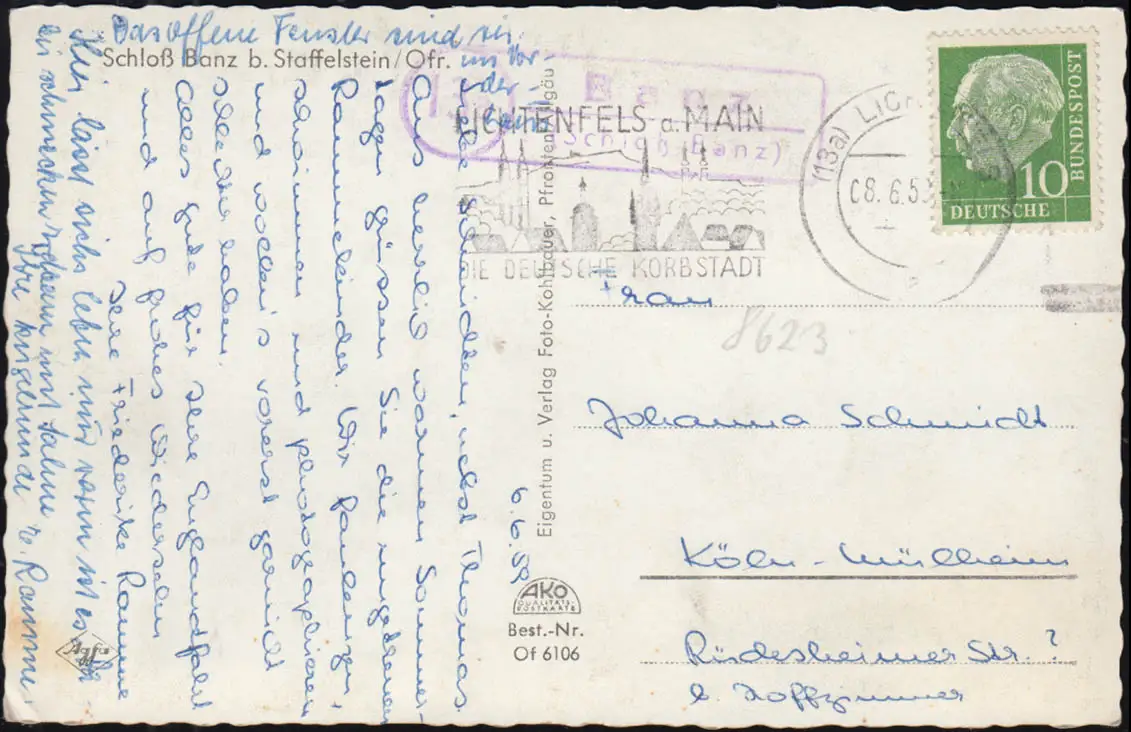 Das offene Fenster sind wir
im Vor-
der-
Schloß Banz b. Staffelstein/Ofr.
(13a) Banz
(Schloß Banz)
LICHTENFELS a. MAIN
DIE DEUTSCHE KORBSTADT
(13a) LICH
08. 6. 59
10
DEUTSCHE
BUNDESPOST
6.6.59
Liebe Schmidten, nebst Thomas.
Aus herrlich warmen Sommer-
tagen grüssen Sie die
Rammelinder. Wir faulenzen,
schwimmen und photographieren
und wollen's vorerst garnicht
wieder haben
Alles gute für Ihre Englandfahrt
und auf frohes Wiedersehn
Ihre Friederike Ramme
Hier lässt sichs leben und wenn ist es
Ihre
Ramme.
Eigentum u. Verlag Foto-Kohlbauer, Pfronten/Allgäu
AKO
QUALITÄTS-
POSTKARTE
Best.-Nr.
Of 6106
Agfa
Frau
8623
Johanna Schmidt
Köln-Mülheim
Rüdesheimer Str. ?
b. Hoffzimmer